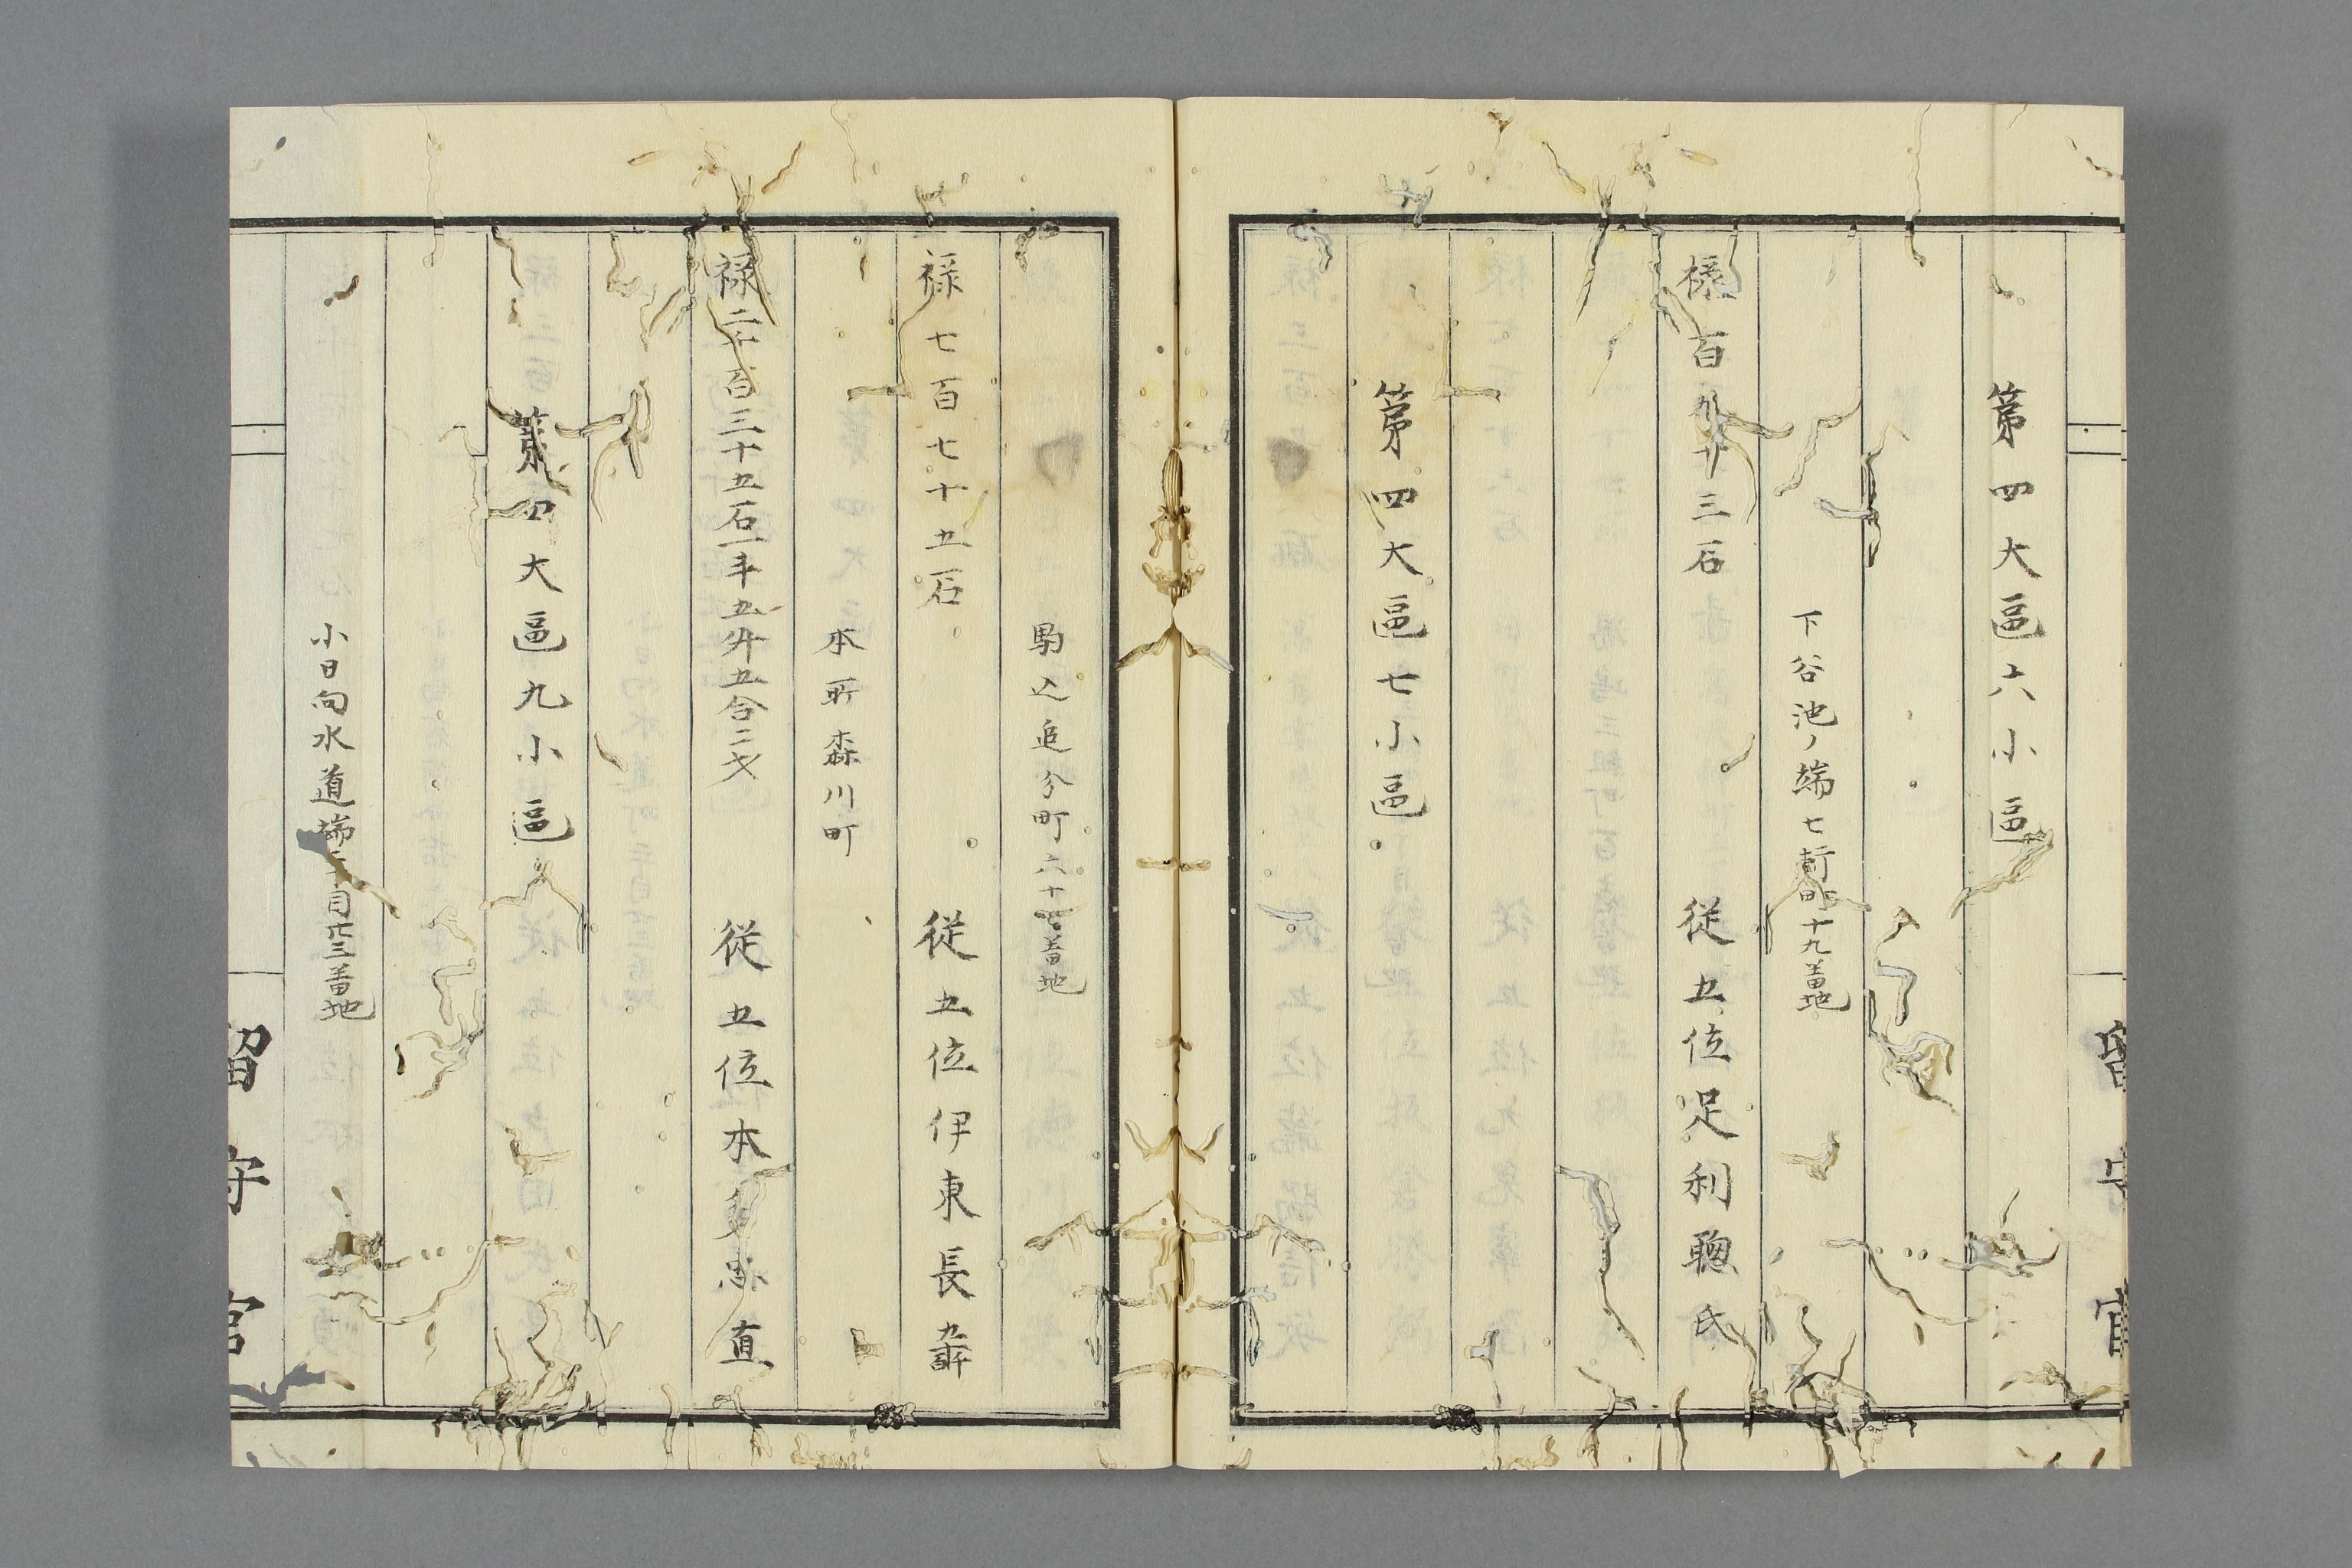 第四大區六小區
下谷池ノ端七軒町十九番地
禄百九十三石 従五位足利聰氏
第四大區七小區
駒込追分町六十番地
禄七百七十五石 従五位伊東長
本所森川町
禄二千百三十五石一斗五升五合二才 従五位本多忠直
第四大區九小區
小日向水道端二目廿三番地
留守官